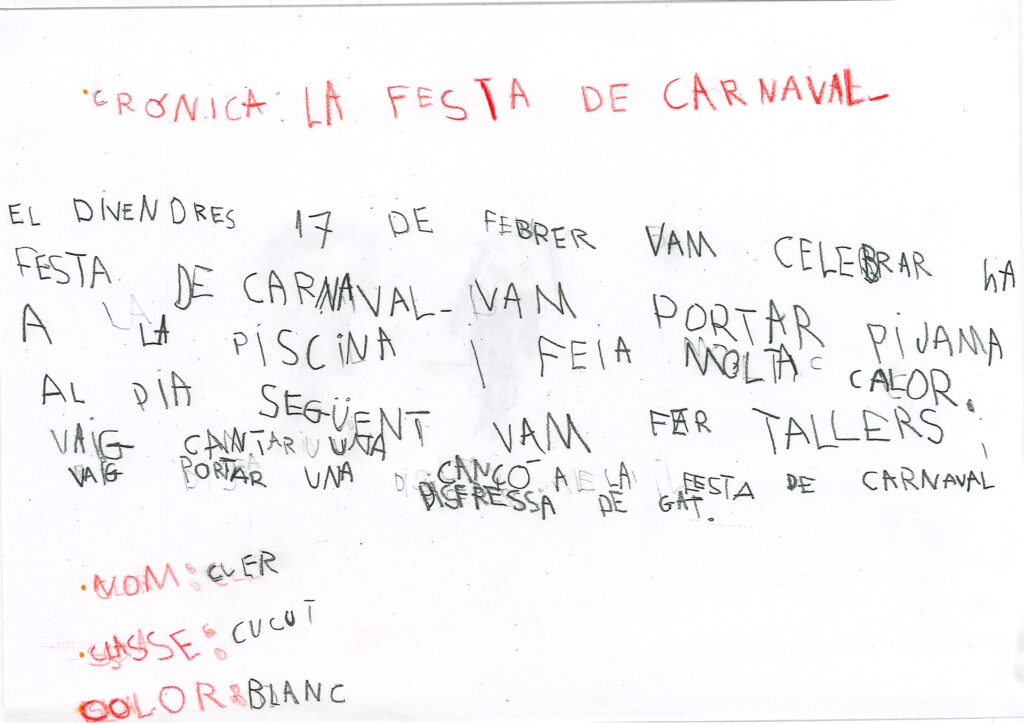 CRÒNICA: LA FESTA DE CARNAVAL
EL DIVENDRES 17 DE FEBRER VAM CELEBRAR hA
FESTA DE CARNAVAL. VAM PORTAR PIJAMA
A LA PISCINA I FEIA MOLTA CALOR.
AL DIA SEGÜENT VAM FER TALLERS I
VAIG CANTAR UNA CANÇÓ A LA FESTA DE CARNAVAL
VAIG PORTAR UNA DISFRESSA DE GAT.
NOM: CLER
CLASSE: CUCUT
COLOR: BLANC